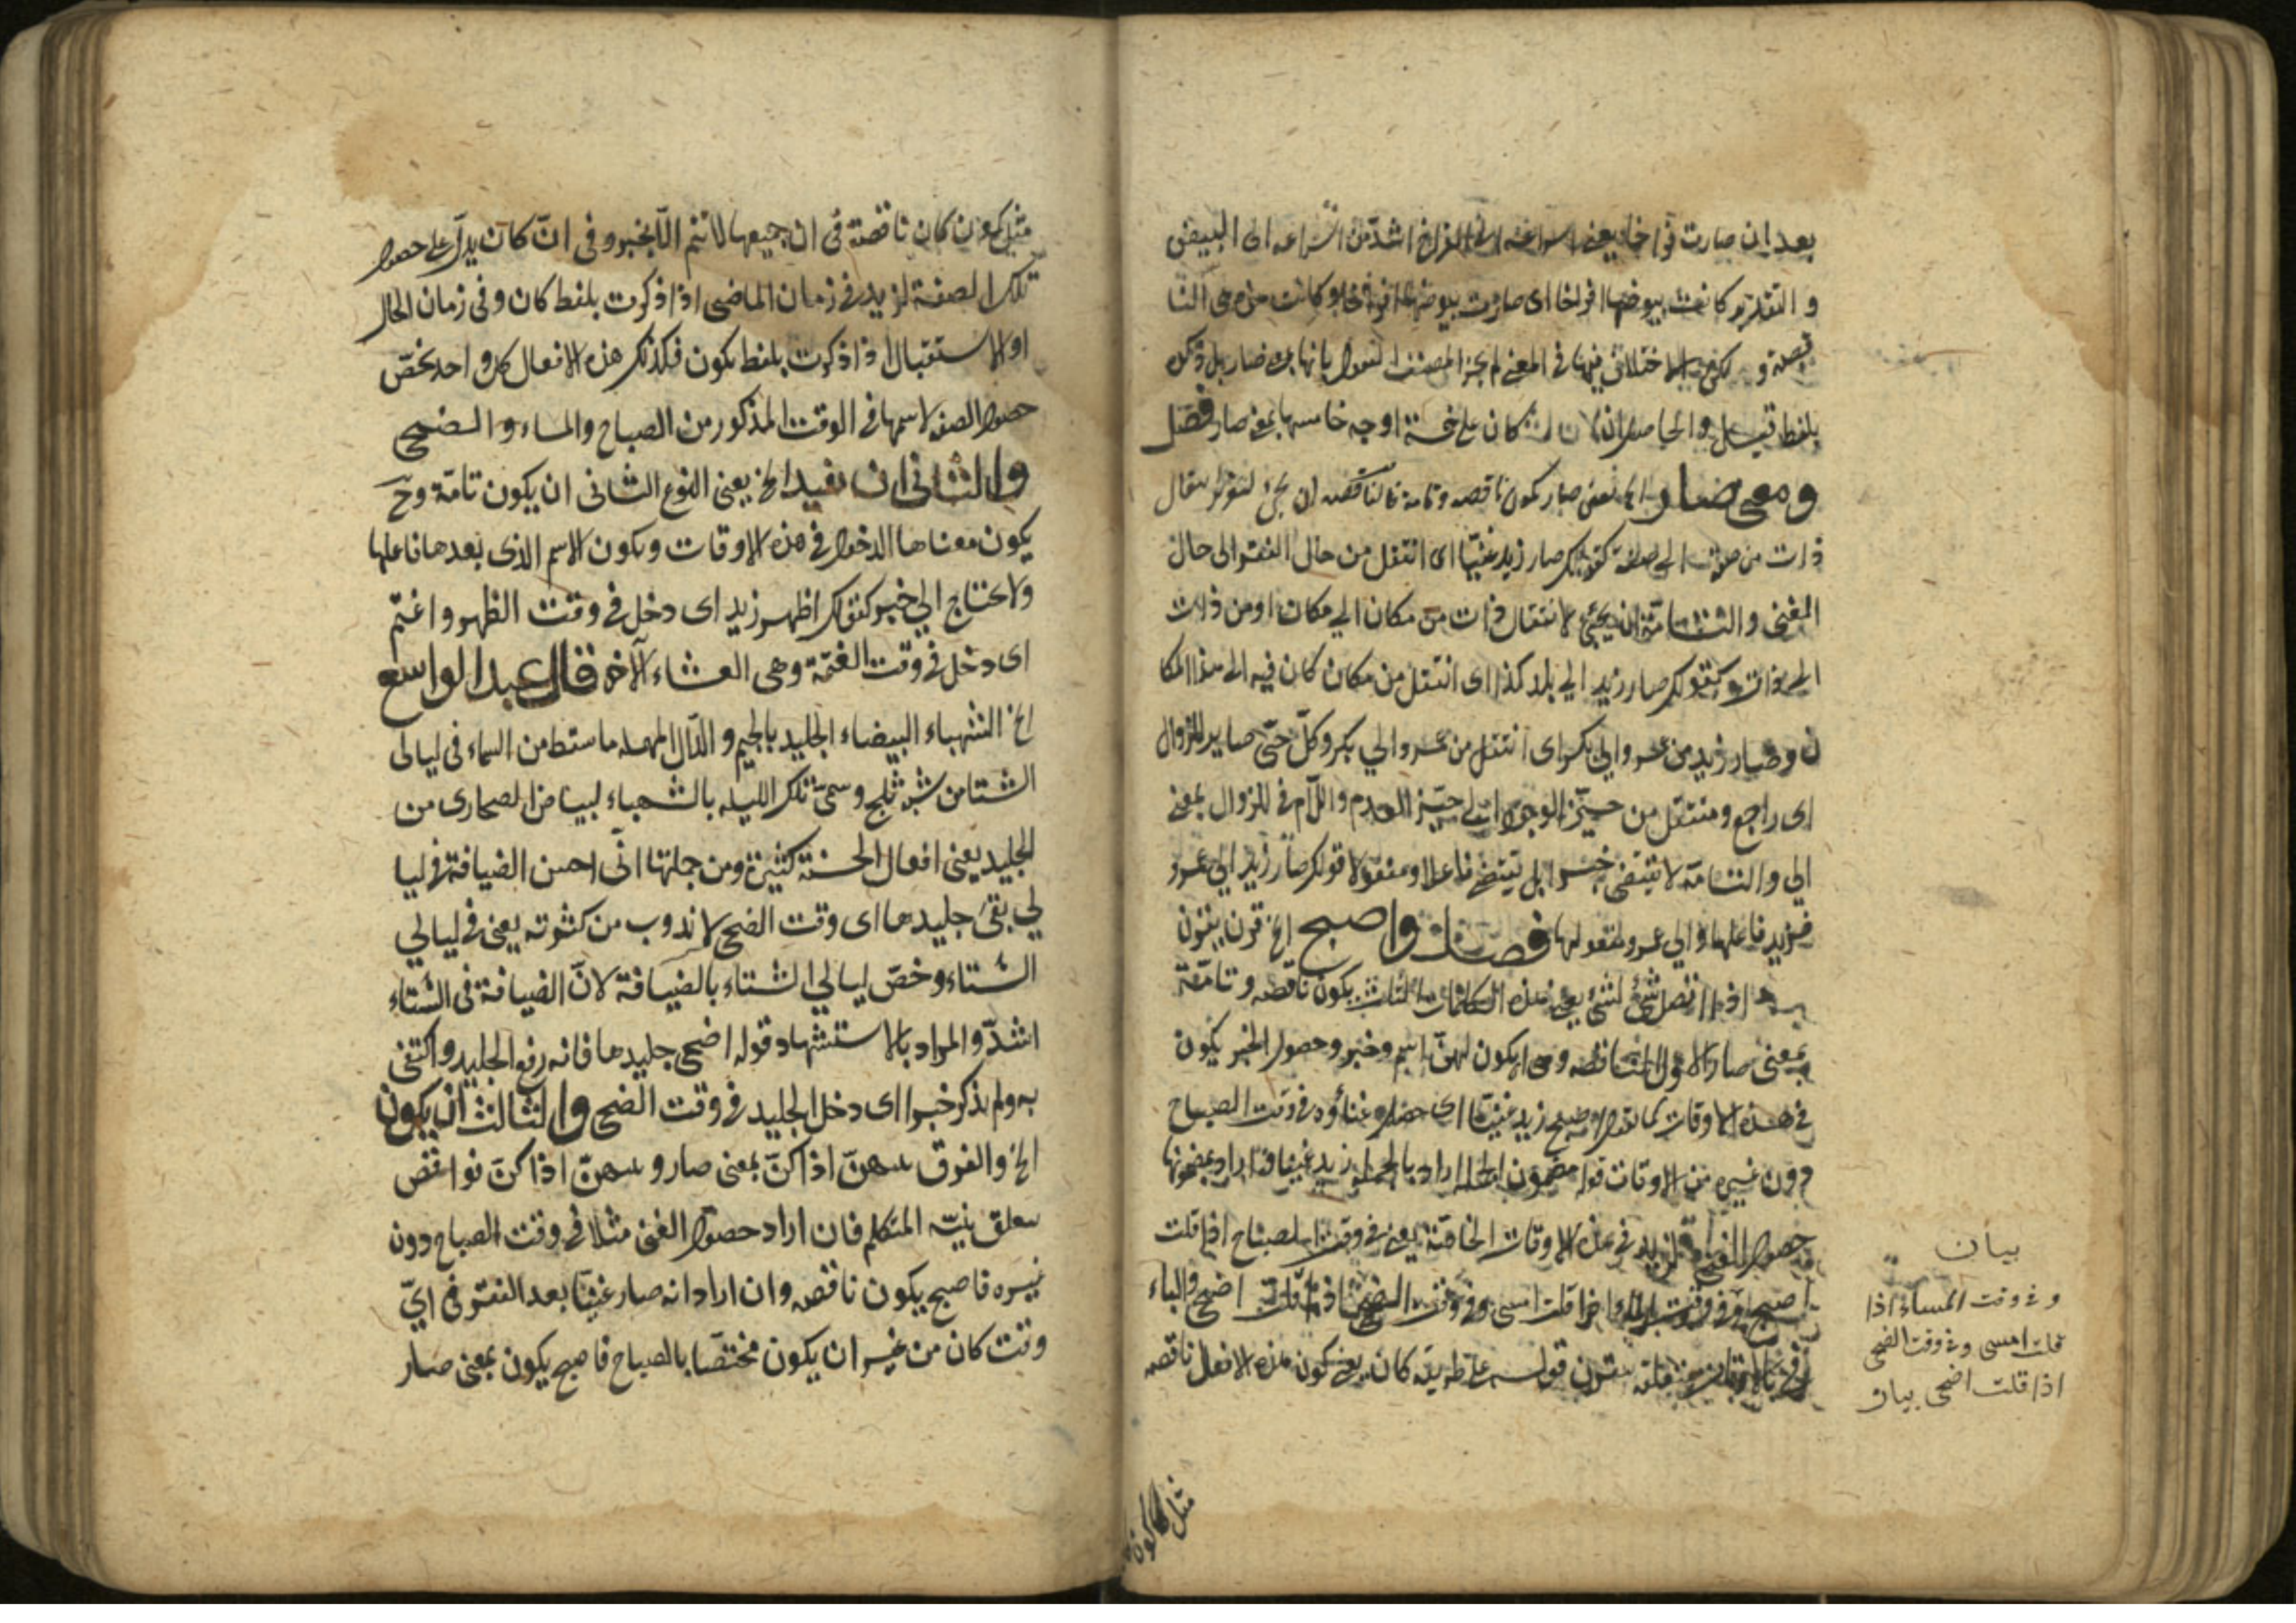 بعد ان صارت فراخا يعنى اسراعه الى الفراخ اشد من اسراعه الى البيض
و التقدير كانت بيوضها افراخا اى صارت بيوضها افراخا و كانت من هى النا
قصة و لكن الاختلاف فيها فى المعنى لم يجز المصنف لقول بانها من صار بل ذكره
بلفظ قيل والحاصل ان كان على خمسة اوجه خامسها بمعنى صار فصل
ومعنى صار الخ يعنى صار يكون ناقصه وتامه فالناقصه ان يجئ لانتقال
ذات من صفة الى صفة كقولك صار زيد غنيّا اى انتقل من حال الفقر الى حال
الغنى والتامّة ان يجئ لانتقال ذات من مكان الى مكان او من ذات
الى ذات كقولك صار زيد الى بلد كذا اى انتقل من مكان كان فيه الى هذا المكا
ن وصار زيد من عمرو الى بكر اى انتقل من عمرو الى بكر وكلّ حىّ صاير للزوال
اى راجع ومنتقل من حيّز الوجود الى حيّز العدم واللّام فى للزوال بمعنى
الى والتامّة لا تقتضى خبرا بل تقتضى فاعلا ومفعولا كقولك صار زيد الى عمرو
فزيد فاعلها والى عمرو مفعولها فصل واصبح الخ قرن يقرن
اذا اتصل شئ لشئ يعنى هذه الكلمات الثلث يكون ناقصه وتامّة
بمعنى صار الاول الناقصه وهى ان يكون لهنّ اسم وخبر وحصول الخبر يكون
فى هذه الاوقات كما تقول اصبح زيد غنيّا اى حصل غناؤه فى وقت الصباح
دون غيره من الاوقات قوله مضمون الجملة اراد بالجملة زيد غنيا فاراد بمضمونها
حصول الغنى لزيد فى هذه الاوقات الخاصّة يعنى فى وقت الصباح اذا قلت
اصبح وفى وقت المساء اذا قلت امسى وفى وقت الضحى اذا قلت اضحى والباء
فى بالاوقات يتعلق بيقرن قوله على طريقة كان يعنى يكون هذه الافعال ناقصه
بيان
و فى وقت المساء اذا
قلت امسى و فى وقت الضحى
اذا قلت اضحى بيان
مثل كون
مثل كون كان ناقصة فى ان جميعها لا تتم الّا بخبر وفى انّ كان يدلّ على حصول
تلك الصفة لزيد فى زمان الماضى اذا ذكرت بلفظ كان وفى زمان الحال
او الاستقبال اذا ذكرت بلفظ يكون فكذلك هذه الافعال كل واحد يخصّ
حصول الصفه لاسمها فى الوقت المذكور من الصباح والمساء والضحى
والثانى ان يفيد الخ يعنى النوع الثانى ان يكون تامّة وحّ
يكون معناها الدخول فى هذه الاوقات ويكون الاسم الذى بعدها فاعلها
ولا يحتاج الى خبر كقولك اظهر زيد اى دخل فى وقت الظهر واعتم
اى دخل فى وقت العتمة وهى العشاء الآخره قال عبد الواسع
الخ الشهباء البيضاء الجليد بالجيم والدّال المهمله ما سقط من السماء فى ليالى
الشتا من شبه ثلج وسمّى تلك الليله بالشهباء لبياض الصحارى من
الجليد يعنى افعال الحسنة كثيرة ومن جملتها انّى احسن الضيافة فى ليا
لى بقى جليدها اى وقت الضحى لا يذوب من كثرته يعنى فى ليالي
الشتاء وخصّ ليالي الشتاء بالضيافة لانّ الضيافة فى الشتاء
اشدّ والمراد بالاستشهاد قوله اضحى جليدها فانه رفع الجليد واكتفى
به ولم يذكر خبرا اى دخل الجليد فى وقت الضحى والثالث ان يكون
الخ والفرق بينهنّ اذا كنّ بمعنى صار وبينهنّ اذا كنّ نواقض
يتعلق بنيّة المتكلم فان اراد حصول الغنى مثلا فى وقت الصباح دون
غيره فاصبح يكون ناقصه وان اراد انه صار غنيّا بعد الفقر فى ايّ
وقت كان من غير ان يكون مختصّا بالصباح فاصبح يكون بمعنى صار